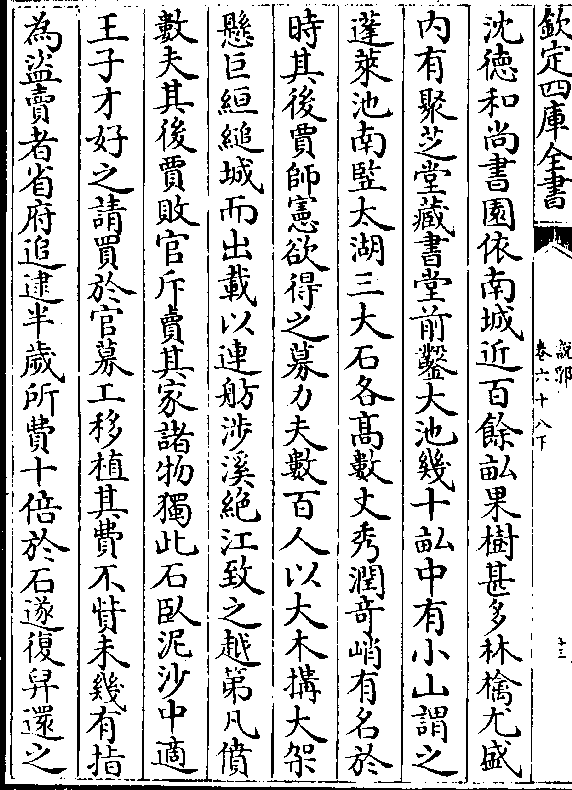 欽定四庫全書
說郛
卷六十八下
十三
沈徳和尚書園依南城近百餘畝果樹甚多林檎尤盛
内有聚芝堂藏書堂前鑿大池幾十畝中有小山謂之
蓬萊池南監太湖三大石各髙數丈秀潤竒峭有名於
時其後賈師憲欲得之募力夫數百人以大木搆大架
懸巨絙縋城而出載以連舫涉溪絶江致之越第凡僨
數夫其後賈敗官斥賣其家諸物獨此石臥泥沙中適
王子才好之請買於官募工移植其費不貲未幾有指
為盜賣者省府追逮半歲所費十倍於石遂復舁還之